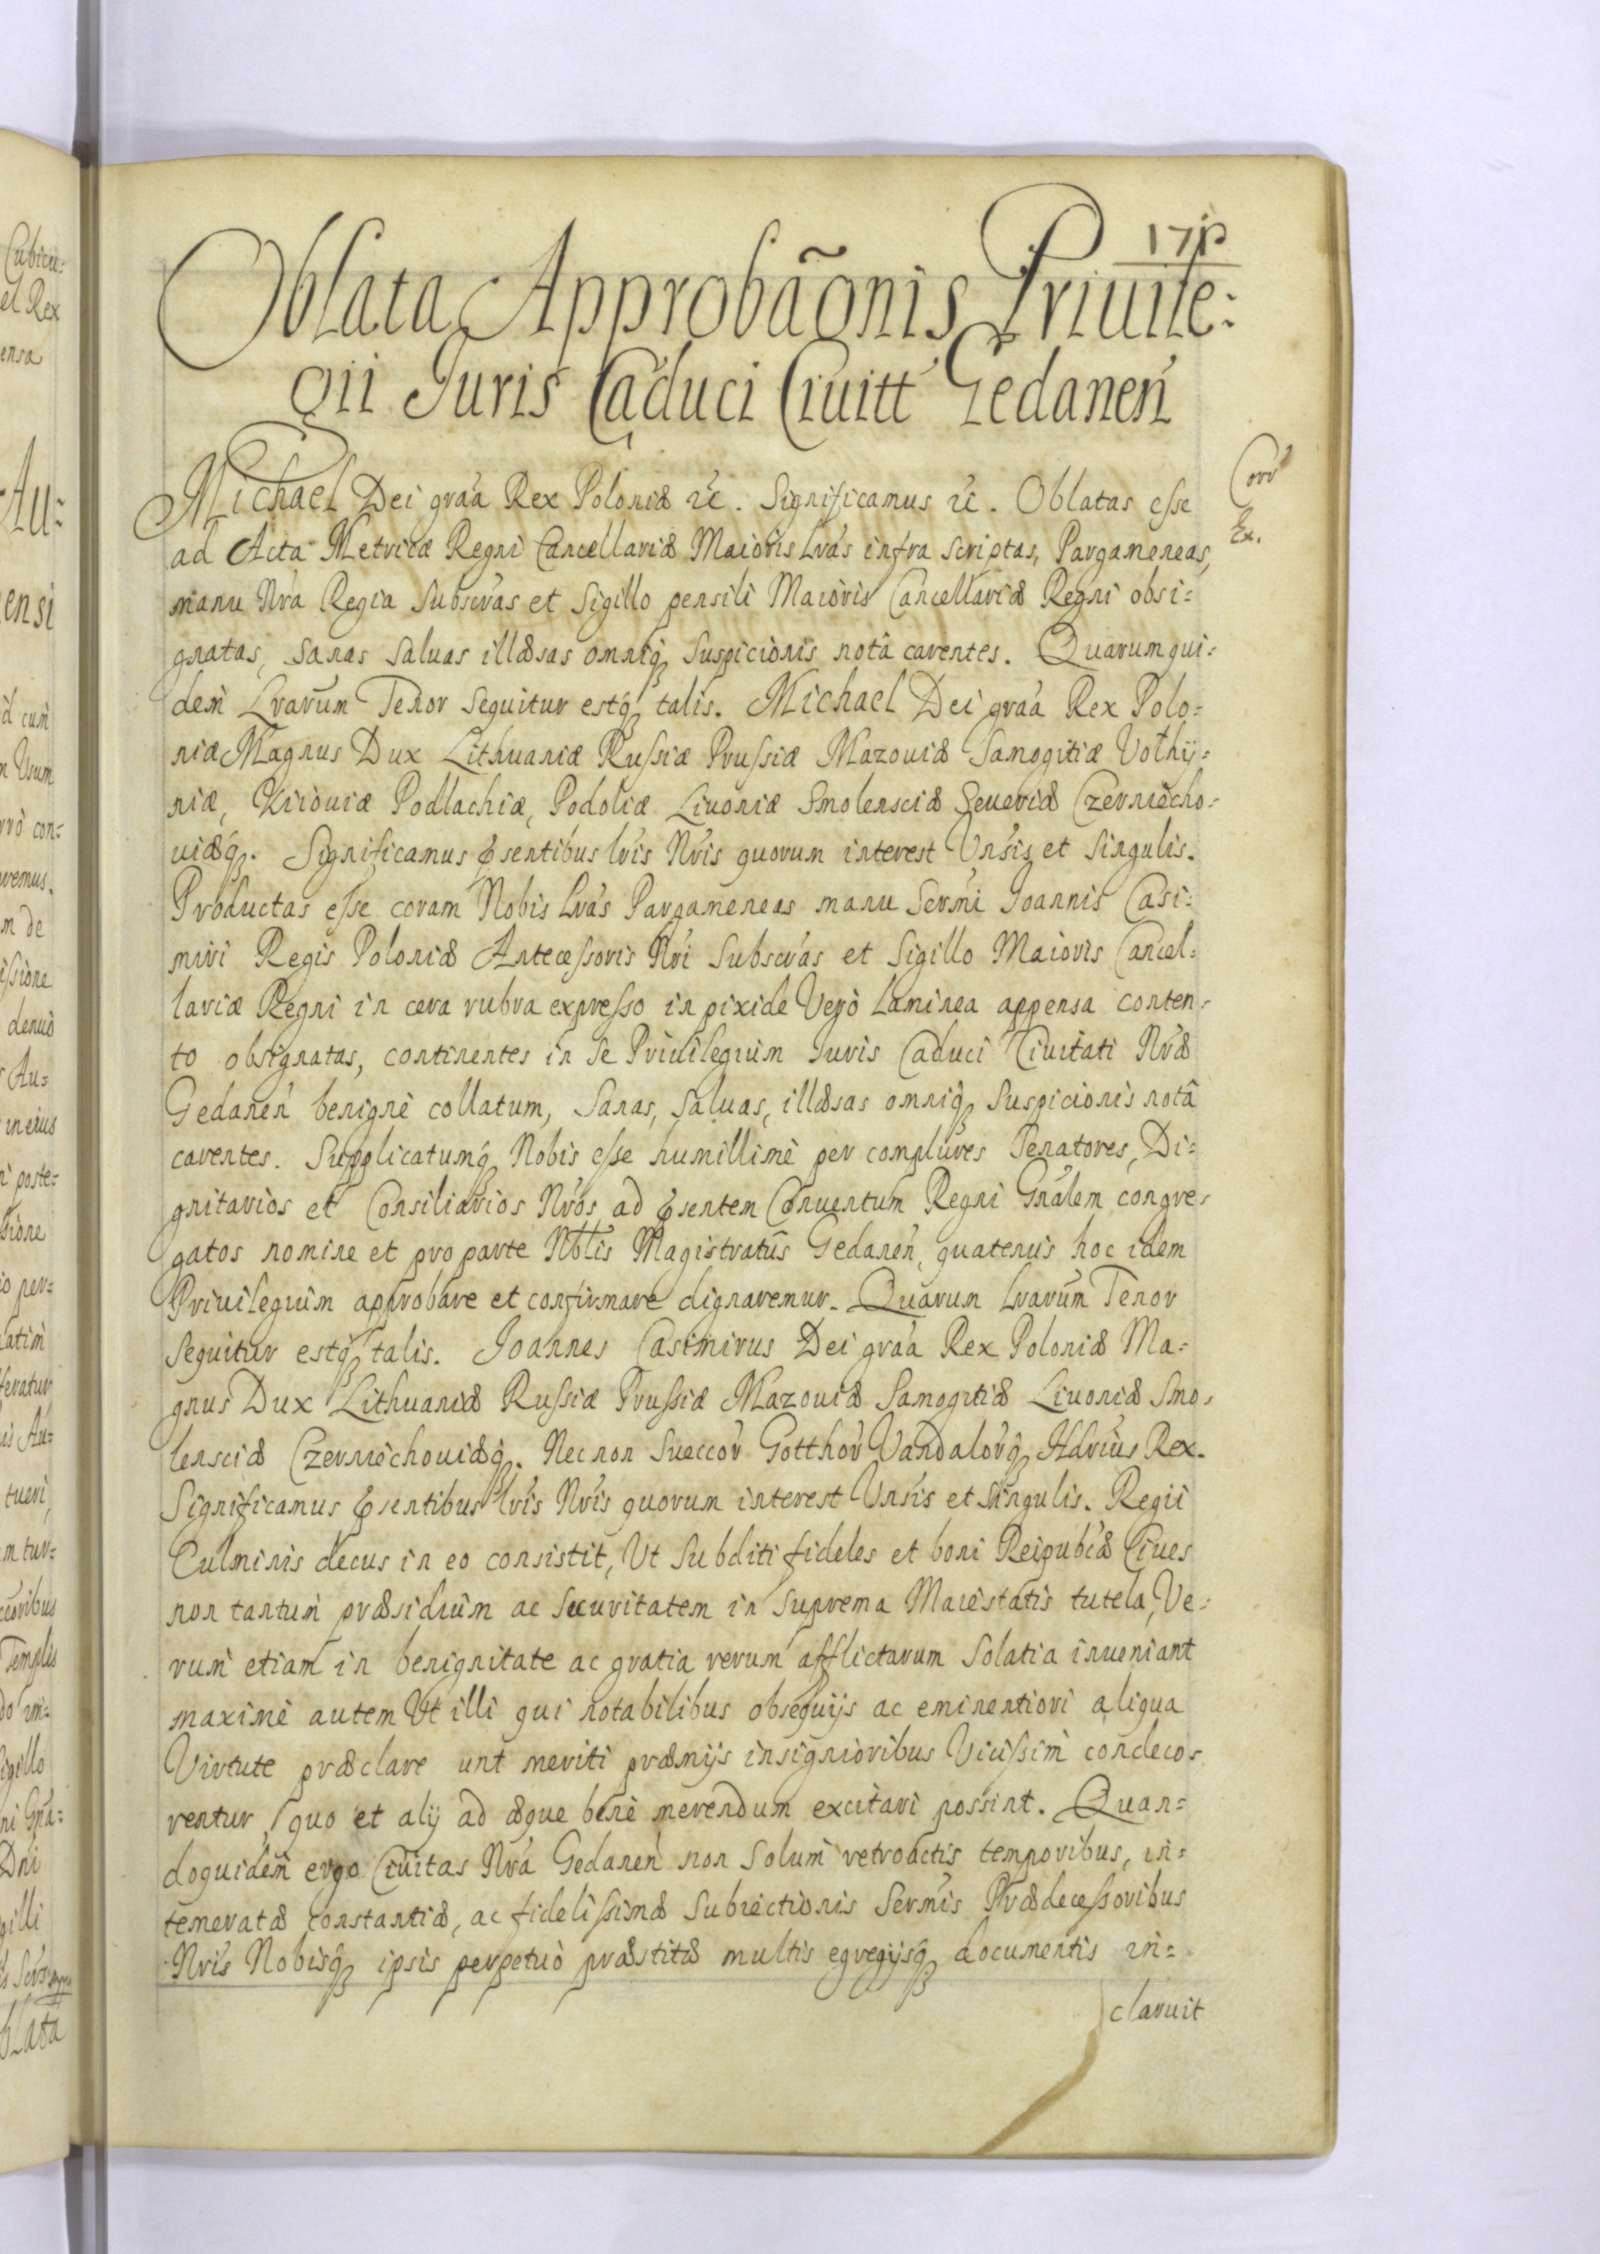 Oblata Approbãonis Priuile=
gii Juris Caduci Ciuitt Gedanen̄
Corr̄
Ex.
Michael Dei gra͞a Rex Poloniæ &c. Significamus &c. Oblatas esse
ad Acta Metricæ Regni Cancellariæ Maioris Lr͞as infra scriptas, Pargameneas,
manu Nr͞a Regia Subscr͞as et Sigillo pensili Maioris Cancellariæ Regni obsi=
gnatas, Sanas Saluas illæsas omniq̃ Suspicionis notâ carentes. Quarum qui=
dem̀ Lrarum̄ Tenor sequitur estq̃ talis. Michael Dei gra͞a Rex Polo=
niæ Magnus Dux Lithuaniæ Russiæ Prussiæ Mazouiæ Samogitiæ Volhÿ=
niæ, Kiiouiæ Podlachiæ, Podoliæ Liuoniæ Smolensciæ Seueriæ Czerniecho=
uiæq̃. Significamus ꝑsentibus lr͞is Nr͞is quorum interest Vns͞is et Singulis.
Productas esse coram Nobis Lr͞as Pargameneas manu Serm͞i Joannis Casi=
miri Regis Poloniæ Antecessoris Nr͞i Subscr͞as et Sigillo Maioris Cancel=
lariæ Regni in cera rubra expresso in pixide Verò Laminea appensa conten=
to obsignatas, continentes in se Priuilegium Juris Caduci Ciuitati Nr͞æ
Gedanen̄ benignè collatum, Sanas, Saluas, illæsas omniq̃ Suspicionis notâ
carentes. Supplicatumq̃ Nobis esse humillimè per complures Senatores, Di=
gnitarios et Consiliarios Nr͞os ad ꝑsentem Conuentum Regni Gn͞alem congre=
gatos nomine et pro parte Nbt͞lis Magistratûs Gedanen̄, quatenus hoc idem
Priuilegium approbare et confirmare dignaremur. Quarum Lrarum̄ Tenor
Sequitur estq̃ talis. Joannes Casimirus Dei gra͞a Rex Poloniæ Ma=
gnus Dux Lithuaniæ Russiæ Prussiæ Mazouiæ Samogitiæ Liuoniæ Smo=
lensciæ Czerniechouiæq̃. Nec non Sueccor̄ Gotthor̄ Vandalor̄q̃ Hdrius Rex.
Significamus ꝑsentibus lr͞is Nr͞is quorum interest Vns͞is et Singulis. Regii
Culminis decus in eo consistit, Ut Subditi fideles et boni Reipub͞cæ Ciues
non tantum̀ præsidium ac Securitatem in Suprema Maiestatis tutela, Ve=
rum̀ etiam in benignitate ac gratia rerum̀ afflictarum Solatia inueniant
maximè autem Ut illi qui notabilibus obsequijs ac eminentiori aliqua
Virtute præclare unt meriti præmijs insignioribus Vicissim̀ condeco=
rentur, quo et alij ad æque benè merendum excitari possint. Quan=
doquidem̀ ergo Ciuitas Nr͞a Gedanen̄ non Solum̀ retroactis temporibus, in=
temeratæ constantiæ, ac fidelissimæ Subiectionis Serm͞is Prædecessoribus
Nr͞is Nobisq̃ ipsis perpetuò præstitæ multis egregijsq̃ documentis in=
claruit